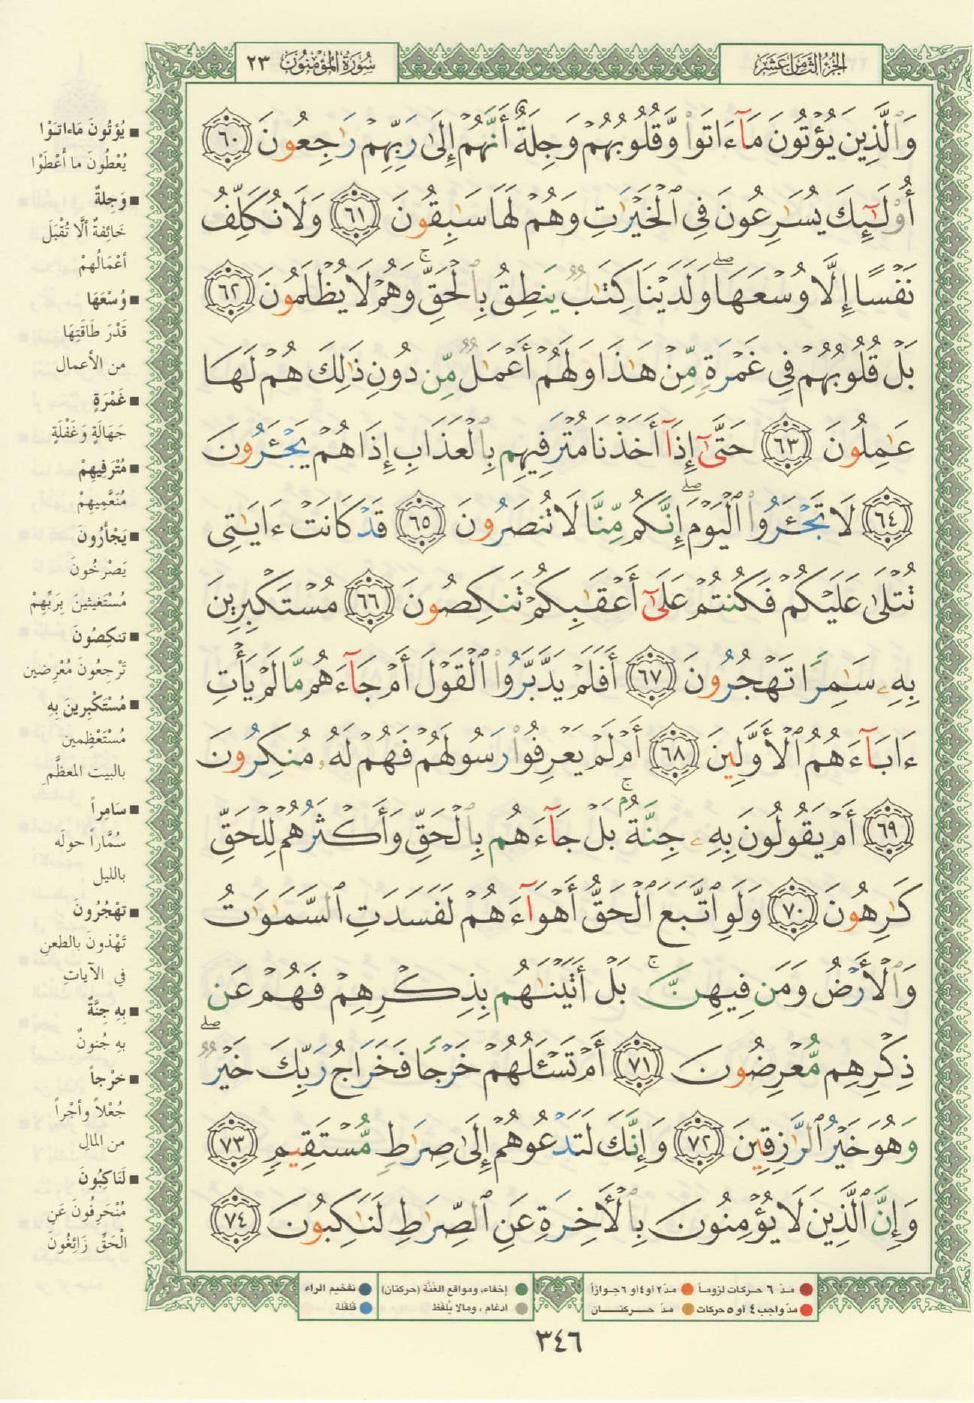 الجزء الثامن عشر
سورة المؤمنون ٢٣
وَٱلَّذِينَ يُؤْتُونَ مَآ ءَاتَوا۟ وَّقُلُوبُهُمْ وَجِلَةٌ أَنَّهُمْ إِلَىٰ رَبِّهِمْ رَٰجِعُونَ ٦٠
أُو۟لَـٰٓئِكَ يُسَـٰرِعُونَ فِى ٱلْخَيْرَٰتِ وَهُمْ لَهَا سَـٰبِقُونَ ٦١ وَلَا نُكَلِّفُ
نَفْسًا إِلَّا وُسْعَهَا ۖ وَلَدَيْنَا كِتَـٰبٌ يَنطِقُ بِٱلْحَقِّ ۚ وَهُمْ لَا يُظْلَمُونَ ٦٢
بَلْ قُلُوبُهُمْ فِى غَمْرَةٍ مِّنْ هَـٰذَا وَلَهُمْ أَعْمَـٰلٌ مِّن دُونِ ذَٰلِكَ هُمْ لَهَا
عَـٰمِلُونَ ٦٣ حَتَّىٰٓ إِذَآ أَخَذْنَا مُتْرَفِيهِم بِٱلْعَذَابِ إِذَا هُمْ يَجْـَٔرُونَ
٦٤ لَا تَجْـَٔرُوا۟ ٱلْيَوْمَ ۖ إِنَّكُم مِّنَّا لَا تُنصَرُونَ ٦٥ قَدْ كَانَتْ ءَايَـٰتِى
تُتْلَىٰ عَلَيْكُمْ فَكُنتُمْ عَلَىٰٓ أَعْقَـٰبِكُمْ تَنكِصُونَ ٦٦ مُسْتَكْبِرِينَ
بِهِۦ سَـٰمِرًا تَهْجُرُونَ ٦٧ أَفَلَمْ يَدَّبَّرُوا۟ ٱلْقَوْلَ أَمْ جَآءَهُم مَّا لَمْ يَأْتِ
ءَابَآءَهُمُ ٱلْأَوَّلِينَ ٦٨ أَمْ لَمْ يَعْرِفُوا۟ رَسُولَهُمْ فَهُمْ لَهُۥ مُنكِرُونَ
٦٩ أَمْ يَقُولُونَ بِهِۦ جِنَّةٌۢ ۚ بَلْ جَآءَهُم بِٱلْحَقِّ وَأَكْثَرُهُمْ لِلْحَقِّ
كَـٰرِهُونَ ٧٠ وَلَوِ ٱتَّبَعَ ٱلْحَقُّ أَهْوَآءَهُمْ لَفَسَدَتِ ٱلسَّمَـٰوَٰتُ
وَٱلْأَرْضُ وَمَن فِيهِنَّ ۚ بَلْ أَتَيْنَـٰهُم بِذِكْرِهِمْ فَهُمْ عَن
ذِكْرِهِم مُّعْرِضُونَ ٧١ أَمْ تَسْـَٔلُهُمْ خَرْجًا فَخَرَاجُ رَبِّكَ خَيْرٌ ۖ
وَهُوَ خَيْرُ ٱلرَّٰزِقِينَ ٧٢ وَإِنَّكَ لَتَدْعُوهُمْ إِلَىٰ صِرَٰطٍ مُّسْتَقِيمٍ ٧٣
وَإِنَّ ٱلَّذِينَ لَا يُؤْمِنُونَ بِٱلْـَٔاخِرَةِ عَنِ ٱلصِّرَٰطِ لَنَـٰكِبُونَ ٧٤
■ يُؤْتُونَ مَاءاتَوْا
يُعْطُونَ ما أَعْطَوْا
■ وَجِلَةٌ
خَائِفةٌ ألّا تُقْبَلَ
أعْمَالُهمْ
■ وُسْعَهَا
قَدْرَ طَاقَتِهَا
من الأعمال
■ غَمْرَةٍ
جَهَالَةٍ وَغَفْلَةٍ
■ مُتْرَفِيهِمْ
مُنَعَّمِيهِمْ
■ يَجْأَرُونَ
يَصْرُخُونَ
مُسْتَغيثينَ بِرَبِّهِمْ
■ تنكِصُونَ
تَرْجِعُونَ مُعْرِضين
■ مُسْتَكْبِرينَ بِهِ
مُسْتَعْظِمين
بالبيت المعظَّمِ
■ سَامِراً
سُمَّاراً حولَه
بالليل
■ تَهْجُرُونَ
تَهْذونَ بالطعنِ
في الآياتِ
■ بِهِ جِنَّةٌ
بِهِ جُنونٌ
■ خَرْجاً
جُعْلاً وأجْراً
من المالِ
■ لَنَاكِبُونَ
مُنْحَرِفُونَ عَنِ
الْحَقِّ زَائِغُونَ
مدّ ٦ حركات لزوماً مدّ ٢ أو ٤ أو ٦ جوازاً
مدّ واجب ٤ أو ٥ حركات مدّ حركتان
إخفاء، ومواقع الغُنَّة (حركتان)
ادغام ، ومالا يُلفَظ
تفخيم الراء
قلقلة
٣٤٦